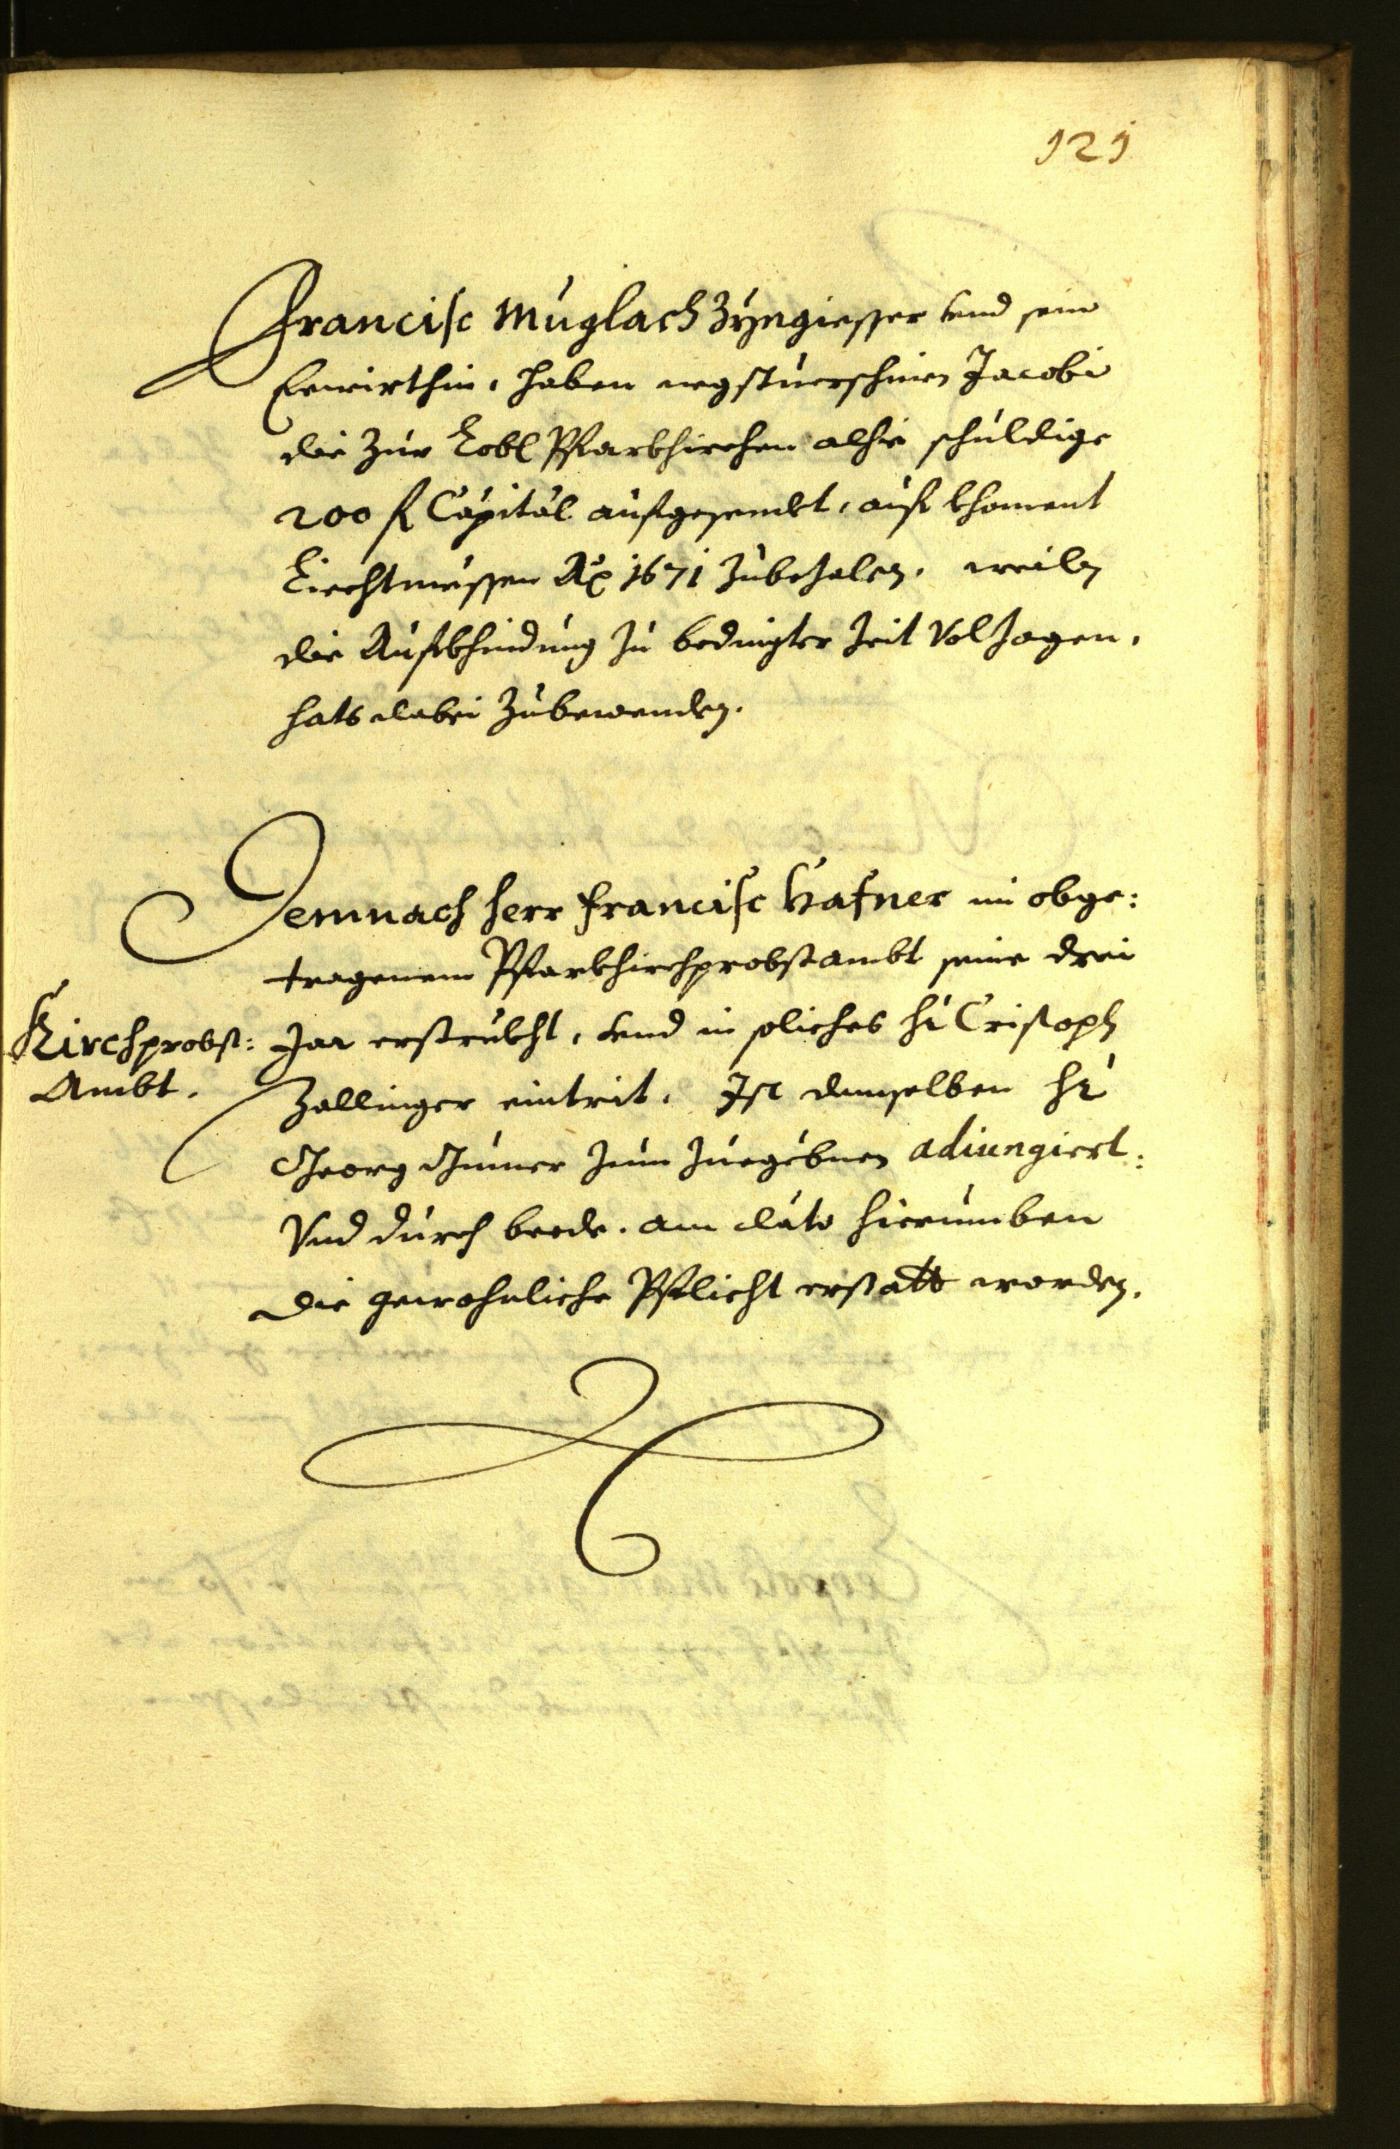 121
Francisc Muglach Zÿngiesser vnd sein
Eewirthin, haben negstuerschinen Jacobi
die Zur Lobl Pfarkhirchen alhie schuldige
200 fl Capital aufgesendt, auf khoment
Liechtmessen Ao 1671 Zubezalen, weiln
die Aufkhindung zu bedingter Zeit Volzogen,
hats dabei Zubewenden.
Demnach Herr Francisc Hafner im obge:
tragenem Pfarkhirchprobstambt seine drei
Kirchprobst:
Ambt.
Jar erstrekht, vnd in soliches Hr Cristoph
Zallinger eintrit, Ist demselben Hr
Georg Gumer zum zuegebnen adiungiert:
Vnd durch beede, am dato hierumben
die gewohnliche Pflicht erstatt worden.